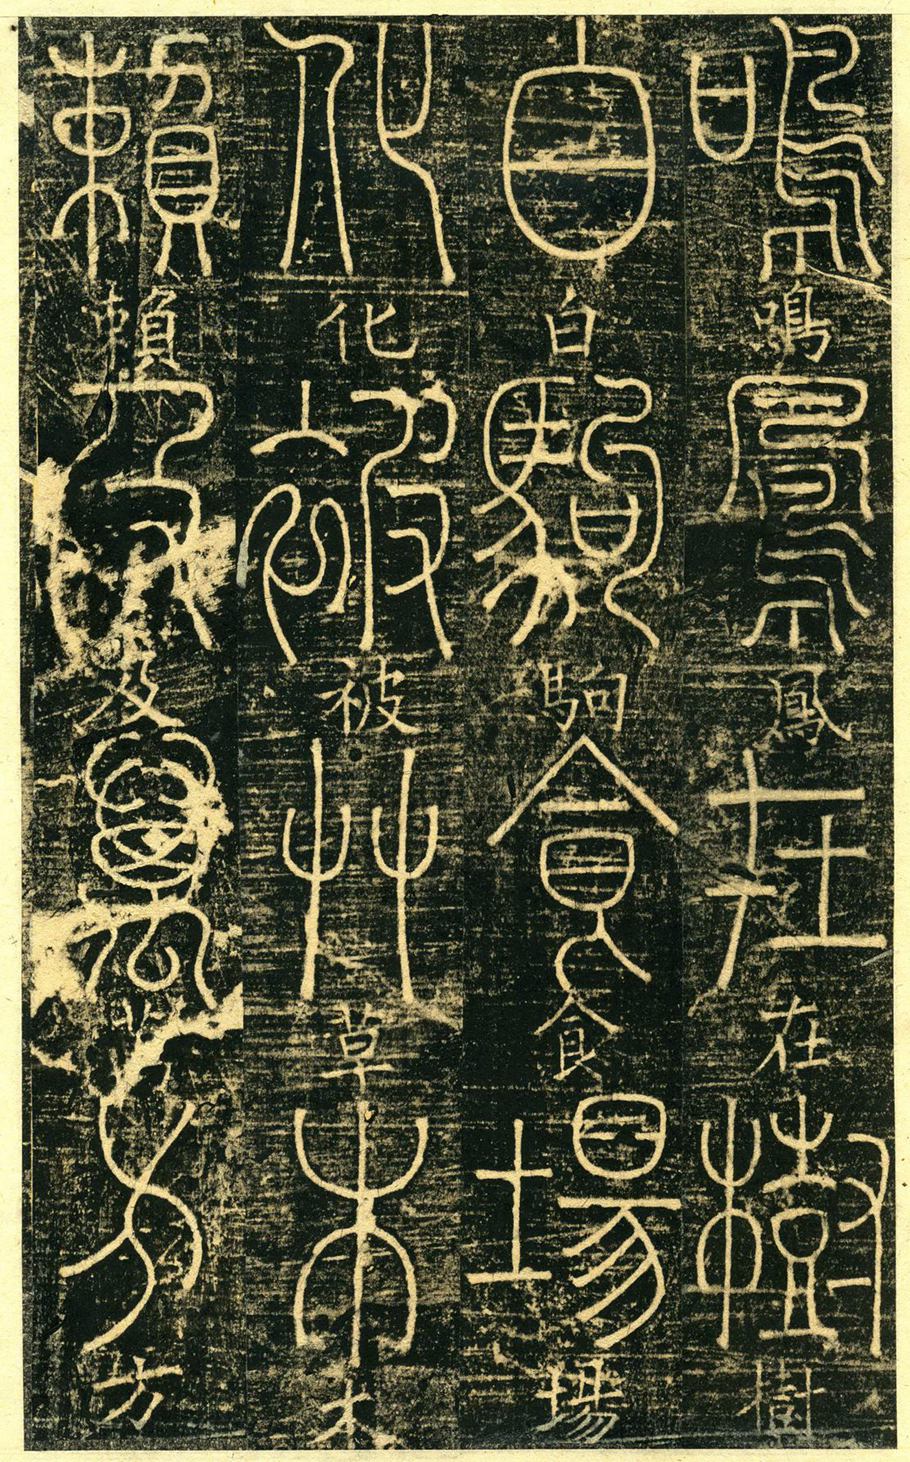 鳴鳳在樹
白駒食場
化被草木
賴及萬方